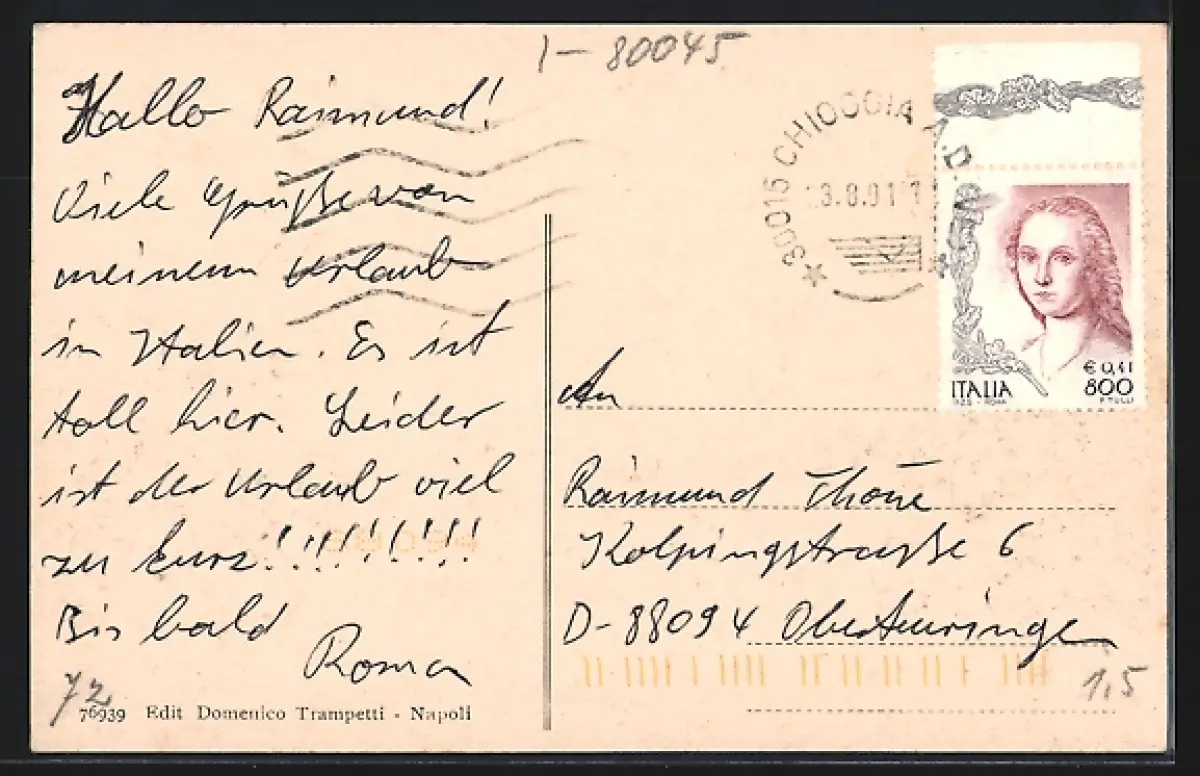 I-80045
Hallo Raimund!
Viele Grüße von
meinem Urlaub
in Italien. Es ist
toll hier. Leider
ist der Urlaub viel
zu kurz!!!!!!!!!!
Bis bald
Roma
72
76939 Edit Domenico Trampetti - Napoli
30015 CHIOGGIA A.D.
3.8.01
€ 0,41
ITALIA 800
I.P.Z.S. - ROMA F. TULLI
An
Raimund Thöne
Kolpingstraße 6
D-88094 Oberteuringen
1,5